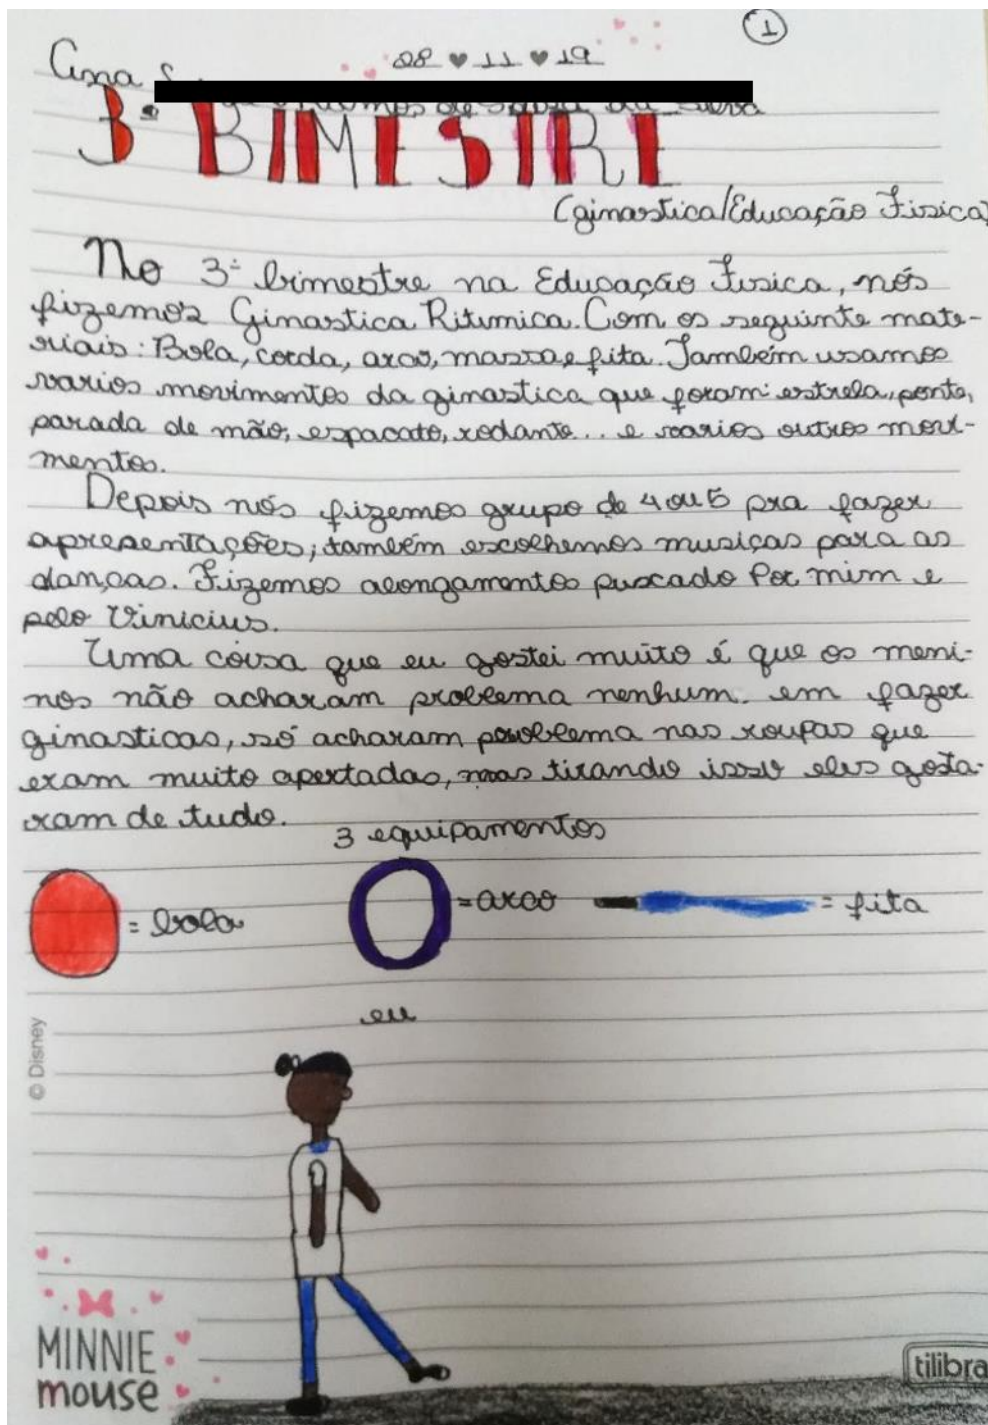 1
28 ♥ 11 ♥ 19
Ana
3º BIMESTRE
(ginastica/Educação Fisica)
No 3º bimestre na Educação Fisica, nós
fizemos Ginastica Ritimica. Com os seguinte mate-
riais: Bola, corda, arco, massa e fita. Também usamos
varios movimentos da ginastica que foram: estrela, ponte,
parada de mão, espacato, rodante... e varios outros movi-
mentos.
Depois nós fizemos grupo de 4 ou 5 pra fazer
apresentações, também escolhemos musicas para as
danças. Fizemos alongamentos puscado Por mim e
pelo Vinicius.
Uma coisa que eu gostei muito é que os meni-
nos não acharam problema nenhum em fazer
ginasticas, só acharam problema nas roupas que
eram muito apertadas, mas tirando isso eles gosta-
ram de tudo.
3 equipamentos
= bola = arco = fita
eu
© Disney
MINNIE
mouse
tilibra